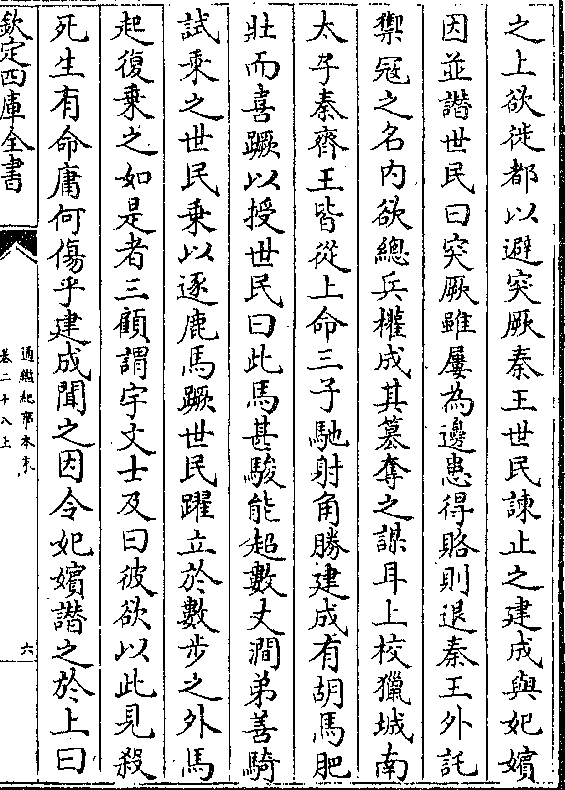 之上欲徙都以避突厥秦王世民諫止之建成與妃嬪
因並譖世民曰突厥雖屢為邊患得賂則退秦王外託
禦冦之名内欲總兵權成其篡奪之謀耳上校獵城南
太子秦齊王皆從上命三子馳射角勝建成有胡馬肥
壯而喜蹶以授世民曰此馬甚駿能超數丈澗弟善騎
試乘之世民乘以逐鹿馬蹶世民躍立於數步之外馬
起復乗之如是者三顧謂宇文士及曰彼欲以此見殺
死生有命庸何傷乎建成聞之因令妃嬪譖之於上曰
欽定四庫全書
通鑑紀事本末
卷二十八上
六